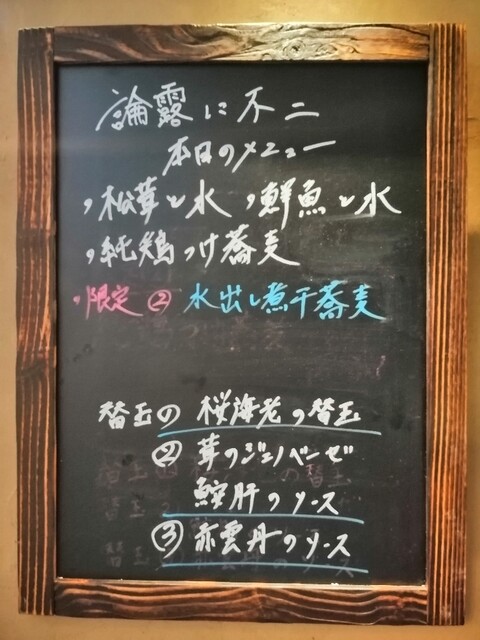 論露に不二
本日のメニュー
、松茸と水 、鮮魚と水
、純鶏つけ蕎麦
、限定② 水出し煮干蕎麦
替玉の 桜海老の替玉
② 茸のジェノベーゼ
鮟肝のソース
③ 赤雲丹のソース